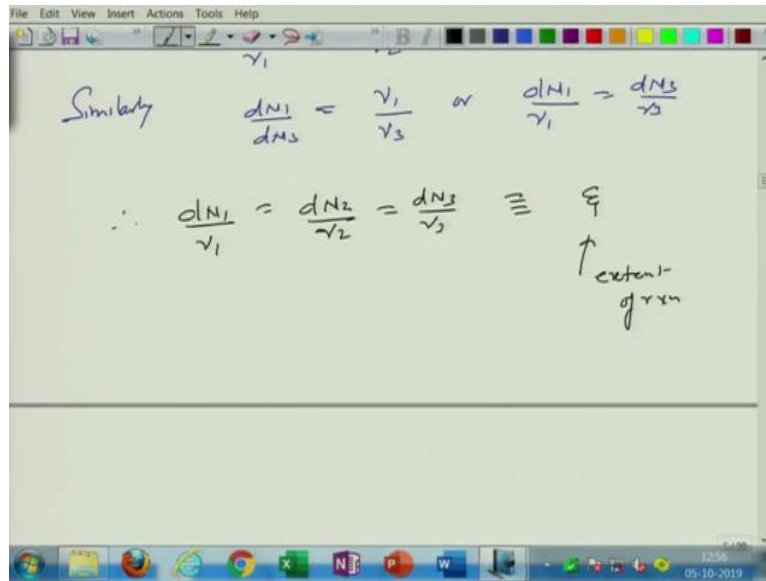 File Edit View Insert Actions Tools Help
ν1
Similarly dN1/dN3 = ν1/ν3 or dN1/ν1 = dN3/ν3
∴ dN1/ν1 = dN2/ν2 = dN3/ν3 ≡ ξ
↑
extent
of rxn
12:56
05-10-2019